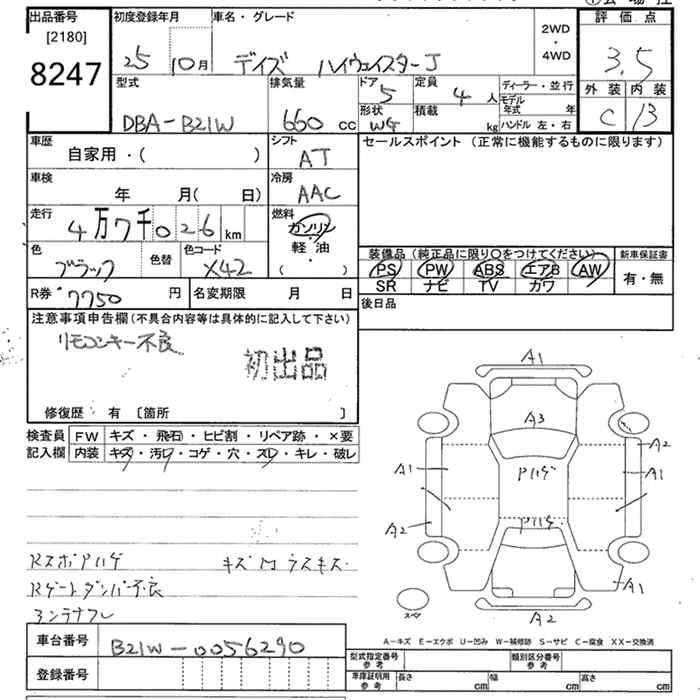 出品番号
[2180]
8247
初度登録年月
25 10月
車名・グレード
デイズ ハイウェイスターJ
2WD
・
4WD
評価点
3.5
外装 内装
C B
型式
DBA-B21W
排気量
660 cc
ドア
5
定員
4 人
形状
WG
積載
kg
ディーラー・並行
モデル年式 年
ハンドル 左・右
車歴
自家用・( )
シフト
AT
セールスポイント (正常に機能するものに限ります)
車検
年 月( 日)
冷房
AAC
走行
4万7千026 km
燃料
ガソリン
・
軽油
( )
色
ブラック
色替
色コード
X42
装備品 (純正品に限り○をつけてください)
新車保証書
PS PW ABS エアB AW
SR ナビ TV カワ
有・無
R券 7750 円
名変期限 月 日
後日品
注意事項申告欄 (不具合内容等は具体的に記入して下さい)
リモコンキー不良
初出品
修復歴 有 〔箇所 〕
検査員記入欄
FW キズ・飛石・ヒビ割・リペア跡・×要
内装 キズ・汚レ・コゲ・穴・スレ・キレ・破レ
RスポPハゲ
キズM ウスキズ
Rゲートダンパー不良
コンテナフレ
A1
A3
A2
A1
Pハゲ
A1
A2
Pハゲ
A1
スペア
A2
A-キズ E-エクボ U-凹み W-補修跡 S-サビ C-腐食 XX-交換済
車台番号
B21W-0056290
登録番号
型式指定番号
参考
類別区分番号
参考
車庫証明用
参考
長さ cm 幅 cm 高さ cm